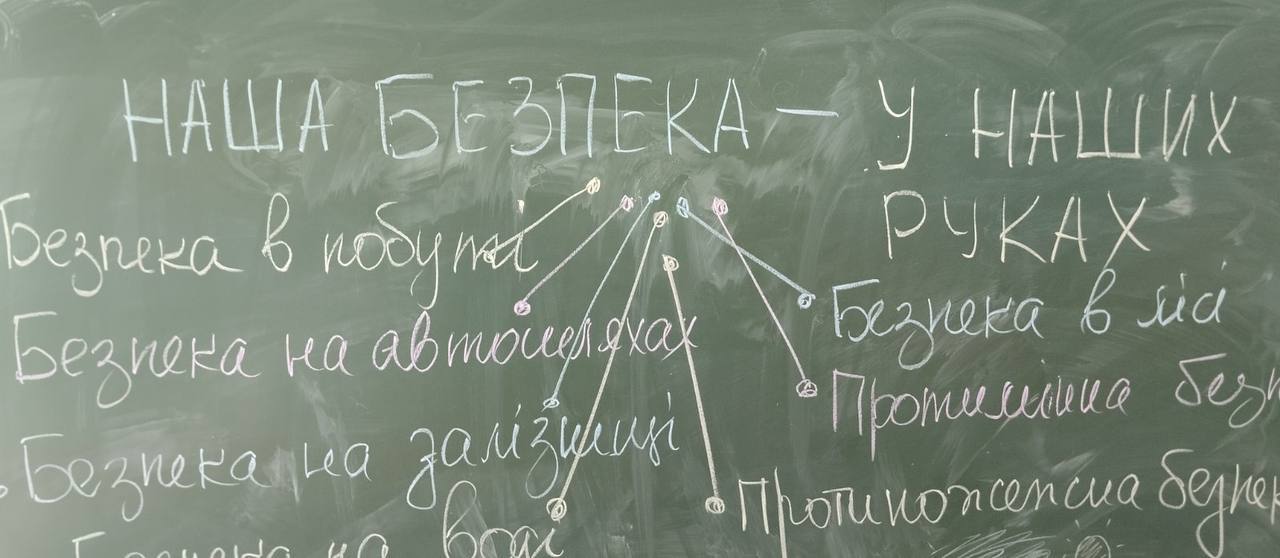 НАША БЕЗПЕКА — У НАШИХ
РУКАХ
Безпека в побуті
Безпека на автошляхах
Безпека на залізниці
Безпека на воді
Безпека в лісі
Протимінна безп
Протипожежна безпек